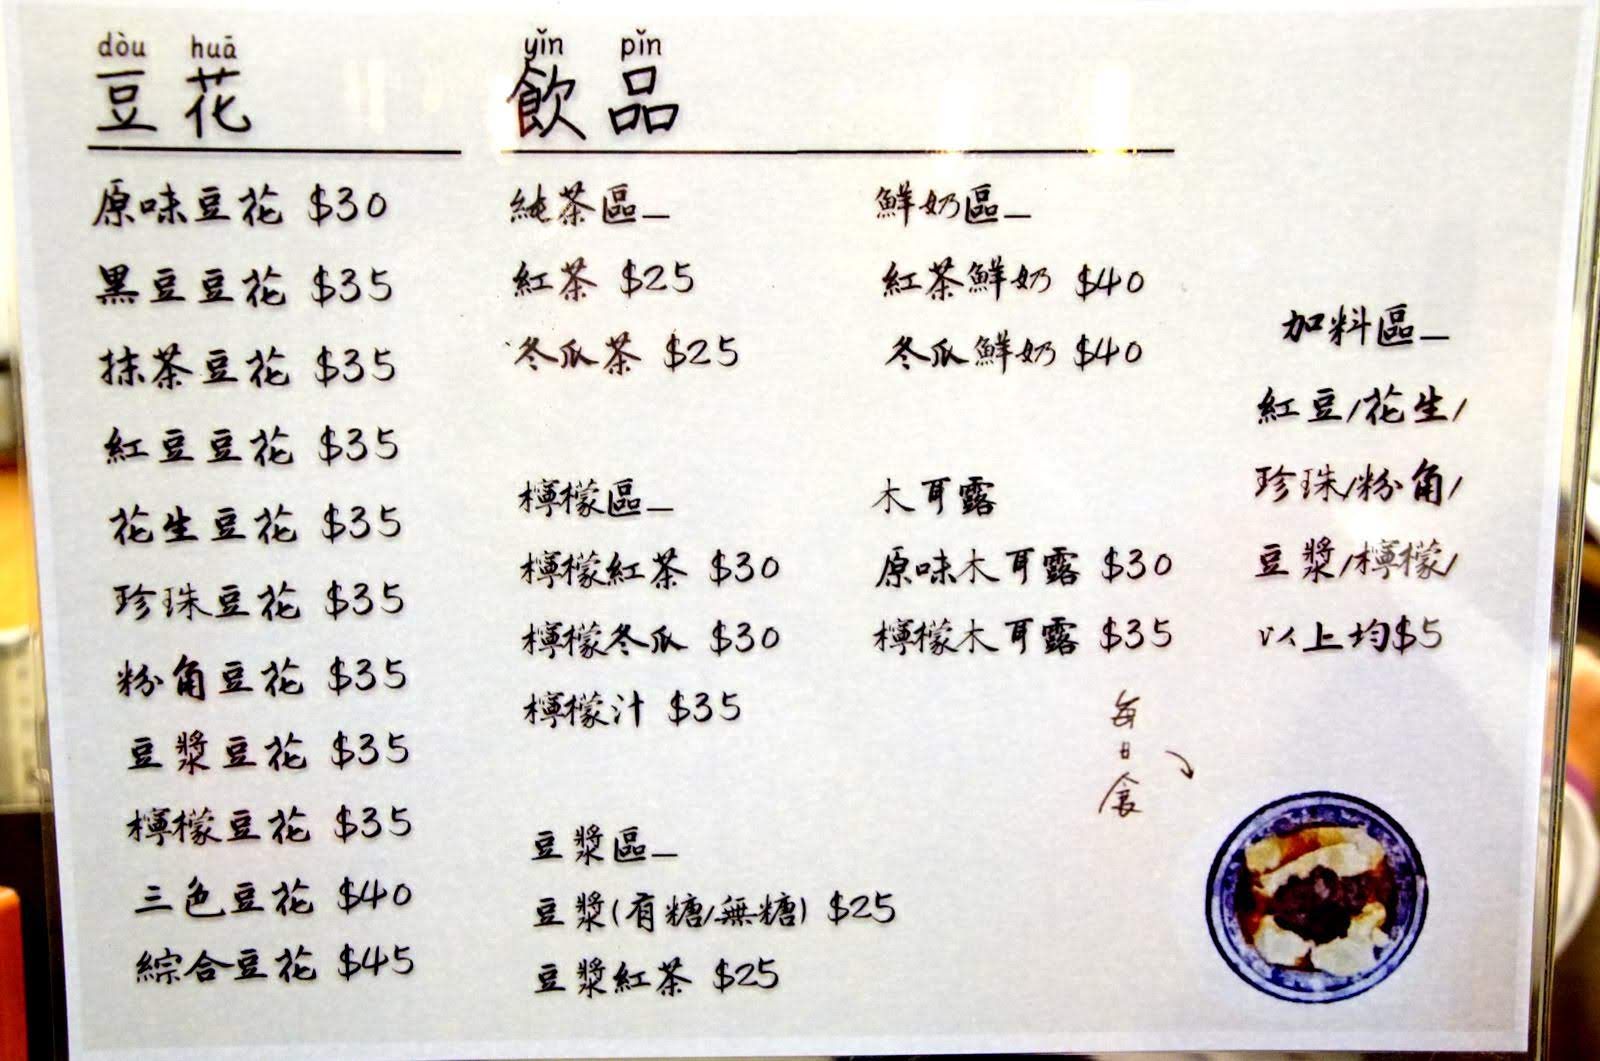 dòu huā
豆花
原味豆花 $30
黑豆豆花 $35
抹茶豆花 $35
紅豆豆花 $35
花生豆花 $35
珍珠豆花 $35
粉角豆花 $35
豆漿豆花 $35
檸檬豆花 $35
三色豆花 $40
綜合豆花 $45
yǐn pǐn
飲品
純茶區_
紅茶 $25
冬瓜茶 $25
檸檬區_
檸檬紅茶 $30
檸檬冬瓜 $30
檸檬汁 $35
豆漿區_
豆漿(有糖/無糖) $25
豆漿紅茶 $25
鮮奶區_
紅茶鮮奶 $40
冬瓜鮮奶 $40
木耳露
原味木耳露 $30
檸檬木耳露 $35
加料區_
紅豆/花生/
珍珠/粉角/
豆漿/檸檬/
以上均$5
每日食